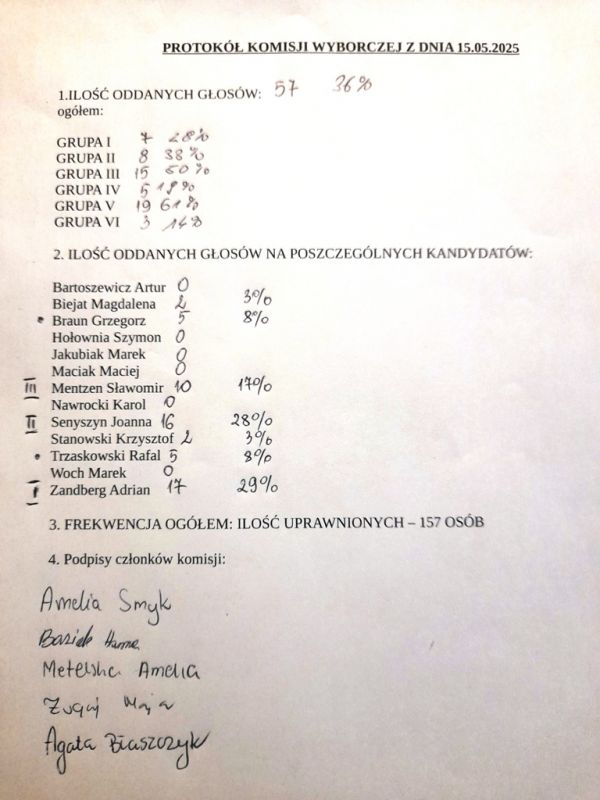 PROTOKÓŁ KOMISJI WYBORCZEJ Z DNIA 15.05.2025
1.ILOŚĆ ODDANYCH GŁOSÓW: 57 36%
ogółem:
GRUPA I 7 28%
GRUPA II 8 38%
GRUPA III 15 50%
GRUPA IV 5 19%
GRUPA V 19 61%
GRUPA VI 3 14%
2. ILOŚĆ ODDANYCH GŁOSÓW NA POSZCZEGÓLNYCH KANDYDATÓW:
Bartoszewicz Artur 0
Biejat Magdalena 2 3%
• Braun Grzegorz 5 8%
Hołownia Szymon 0
Jakubiak Marek 0
Maciak Maciej 0
III Mentzen Sławomir 10 17%
Nawrocki Karol 0
II Senyszyn Joanna 16 28%
Stanowski Krzysztof 2 3%
• Trzaskowski Rafał 5 8%
Woch Marek 0
I Zandberg Adrian 17 29%
3. FREKWENCJA OGÓŁEM: ILOŚĆ UPRAWNIONYCH – 157 OSÓB
4. Podpisy członków komisji:
Amelia Smyk
Hanna
Metelska Amelia
Zugaj Maja
Agata Błaszczyk